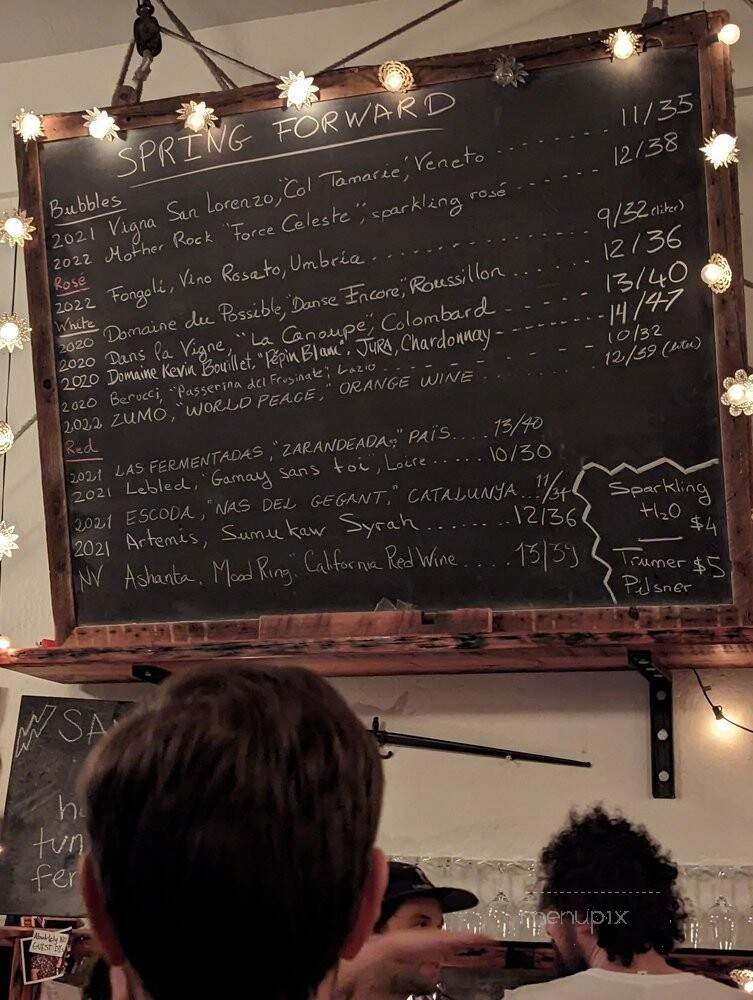 SPRING FORWARD
Bubbles
2021 Vigna San Lorenzo, "Col Tamarie," Veneto ------- 11/35
2022 Mother Rock "Force Celeste", sparkling rosé ------ 12/38
Rosé
2022 Fongoli, Vino Rosato, Umbria ---------- 9/32 (liter)
White
2020 Domaine du Possible, "Danse Encore," Roussillon ---- 12/36
2020 Dans la Vigne, "La Canoupe", Colombard -------- 13/40
2020 Domaine Kevin Bouillet, "Pépin Blanc", JURA, Chardonnay ------- 14/47
2020 Berucci, "Passerina del Frusinate", Lazio ---------- 10/32
2022 ZUMO, "WORLD PEACE," ORANGE WINE ........ 12/39 (liter)
Red
2021 LAS FERMENTADAS, "ZARANDEADA," PAÍS.... 13/40
2021 Lebled, "Gamay sans toi", Loire...... 10/30
2021 ESCODA, "NAS DEL GEGANT," CATALUNYA... 11/34
2021 Artemis, Sumukaw Syrah ........ 12/36
NV Ashanta, "Mood Ring," California Red Wine ..... 13/39
Sparkling
H2O
$4
Trumer $5
Pilsner
SA
tun
fer
Absolutely No
GUEST DJs
menupix